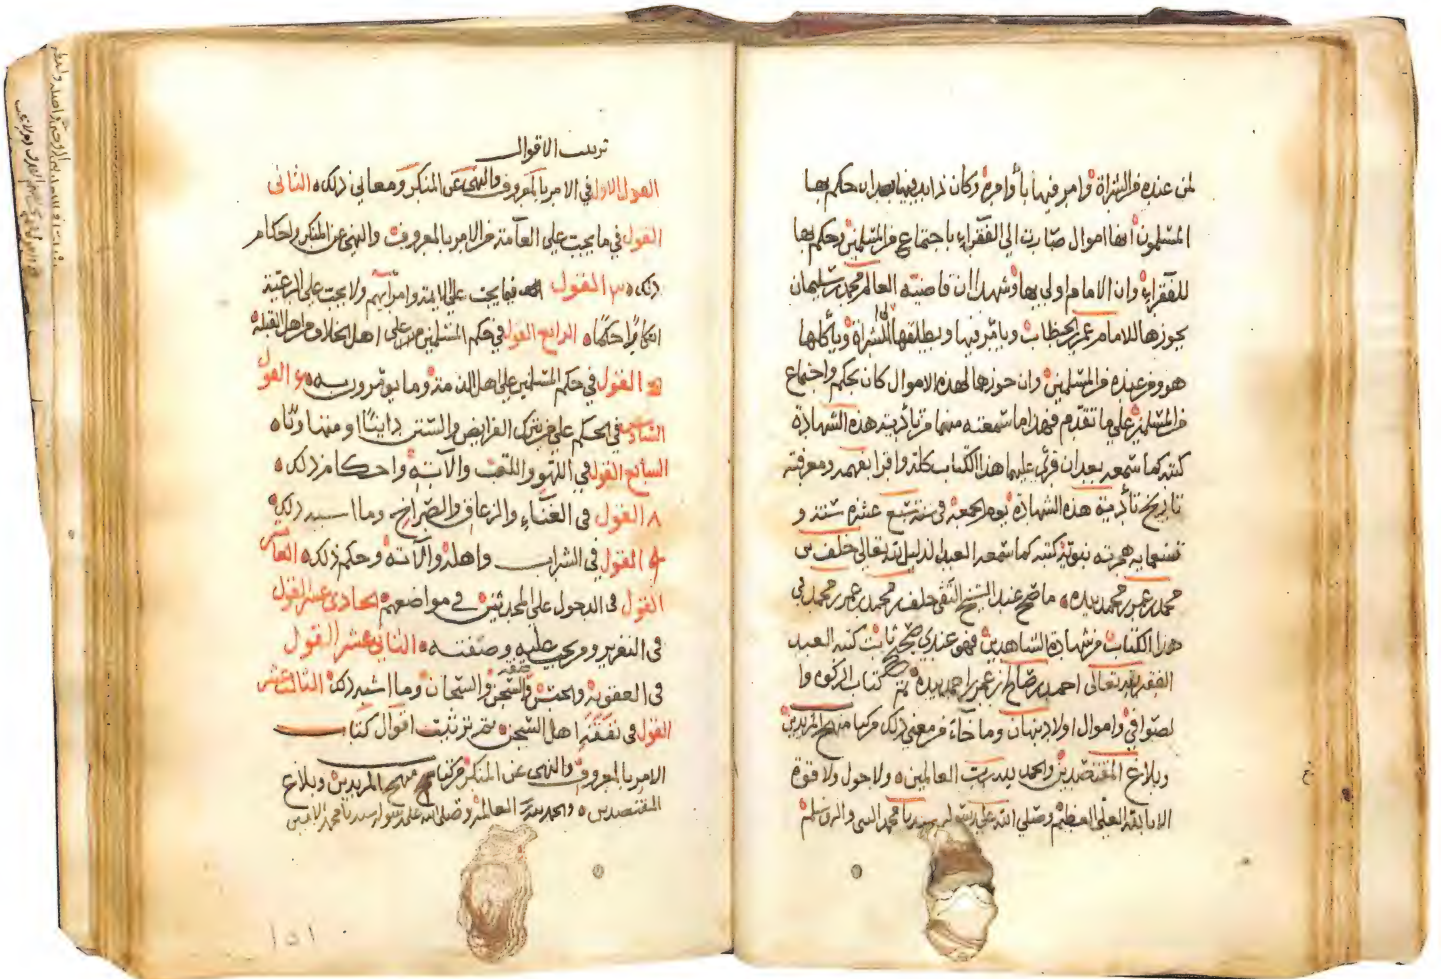 لمن عنده من الشراة وامر فيها بأوامره وكان زايد فيها بعد ان حكم بها
المسلمون أنها اموال صارت الى الفقراء باجتماع من المسلمين وحكم بها
للفقراء وان الامام اولى بها وشهدا ان قاضيه العالم محمد بن سليمان
يجوزها للامام عمر بن الخطاب ويأمر فيها ويطلقها للشراة ويأكلها
هو ومن عنده من المسلمين وان حوزهما لهذه الاموال كان بحكم واجتماع
من المسلمين على ما تقدم فهذا ما سمعته منهما من تأدية هذه الشهادة
كتبه كما سمعه بعد ان قرئ عليهما هذا الكتاب كله واقرا بفهمه ومعرفته
تاريخ تأدية هذه الشهادة يوم الجمعة في سنة سبع عشرة سنة و
تسعمايه هجرته نبويّة كتبه كما سمعه العبد لله تعالى خلف بن
محمد بن عمر بن محمد بيده ما صح عند الشيخ التقي خلف بن محمد بن عمر بن محمد في
هذا الكتاب من شهادة الشاهدين فهو عندي صحيح ثابت كتبه العبد
الفقير لله تعالى احمد بن صالح بن عمر بن احمد بيده تم كتاب الزكوة وا
لصوافي واموال اولاد نبهان وما جاء من معنى ذلك من كتاب منهج المريدين
وبلاغ المقتصدين والحمد لله رب العالمين ولا حول ولا قوة
الا بالله العلي العظيم وصلى الله على رسوله سيدنا محمد النبي واله وسلم
ترتيب الاقوال
القول الاول في الامر بالمعروف والنهى عن المنكر ومعاني ذلك الثانى
القول في ما يجب على العامة من الامر بالمعروف والنهى عن المنكر واحكام
ذلك ٣ القول فيما يجب على الائمة وامرآئهم ولا يجب على الرعية
احكامًا الرابع القول في حكم المسلمين على اهل الخلاف من اهل القبلة
القول في حكم المسلمين على اهل الذمة وما يؤمرون به ٦ القول
السادس في الحكم على من يترك الفرايض والسنن داينًا او متهاونًا
السابع القول في اللهو واللعب والآته واحكام ذلك
٨ القول في الغناء والزعاق والصراخ وما اشبه ذلك
٩ القول في الشراب واهله والآته وحكم ذلك العاشر
القول في الدخول على المحدثين في مواضعهم الحادى عشر القول
في التعزير ومن يجب عليه وصفته الثاني عشر القول
في العقوبة والحبس والسجن والسجان وما اشبه ذلك الثالث عشر
القول في نفقة اهل السجن تم ترتيب اقوال كتاب
الامر بالمعروف والنهى عن المنكر من كتاب منهج المريدين وبلاغ
المقتصدين والحمد لله رب العالمين وصلى الله على رسوله سيدنا محمد الامين
١٥١